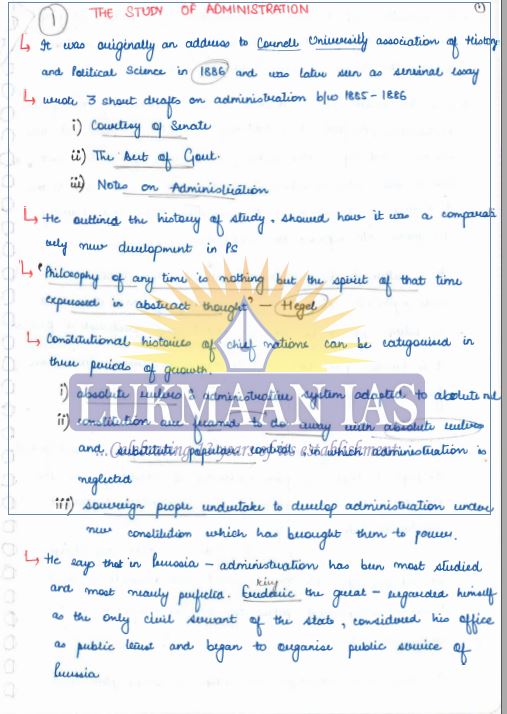 ① THE STUDY OF ADMINISTRATION ①
↳ It was originally an address to Cornell University association of History
and Political Science in 1886 and was later seen as seminal essay
↳ wrote 3 short drafts on administration b/w 1885-1886
i) Courtesy of Senate
ii) The Art of Govt.
iii) Notes on Administration
↳ He outlined the history of study, showed how it was a comparati
vely new development in PS
↳ "Philosophy of any time is nothing but the spirit of that time
expressed in abstract thought" - Hegel
↳ Constitutional histories of chief nations can be categorised in
three periods of growth.
i) absolute rulers & administrative system adapted to absolute rul
LUKMAAN IAS
ii) constitution are framed to do away with absolute rulers
...Celebrating 13 years of its establishment...
and substitute popular control, in which administration is
neglected
iii) sovereign people undertake to develop administration under
new constitution which has brought them to power.
↳ He says that in Prussia - administration has been most studied
and most nearly perfected. king Frederic the great - regarded himself
as the only civil servant of the state, considered his office
as public trust and began to organise public service of
Prussia